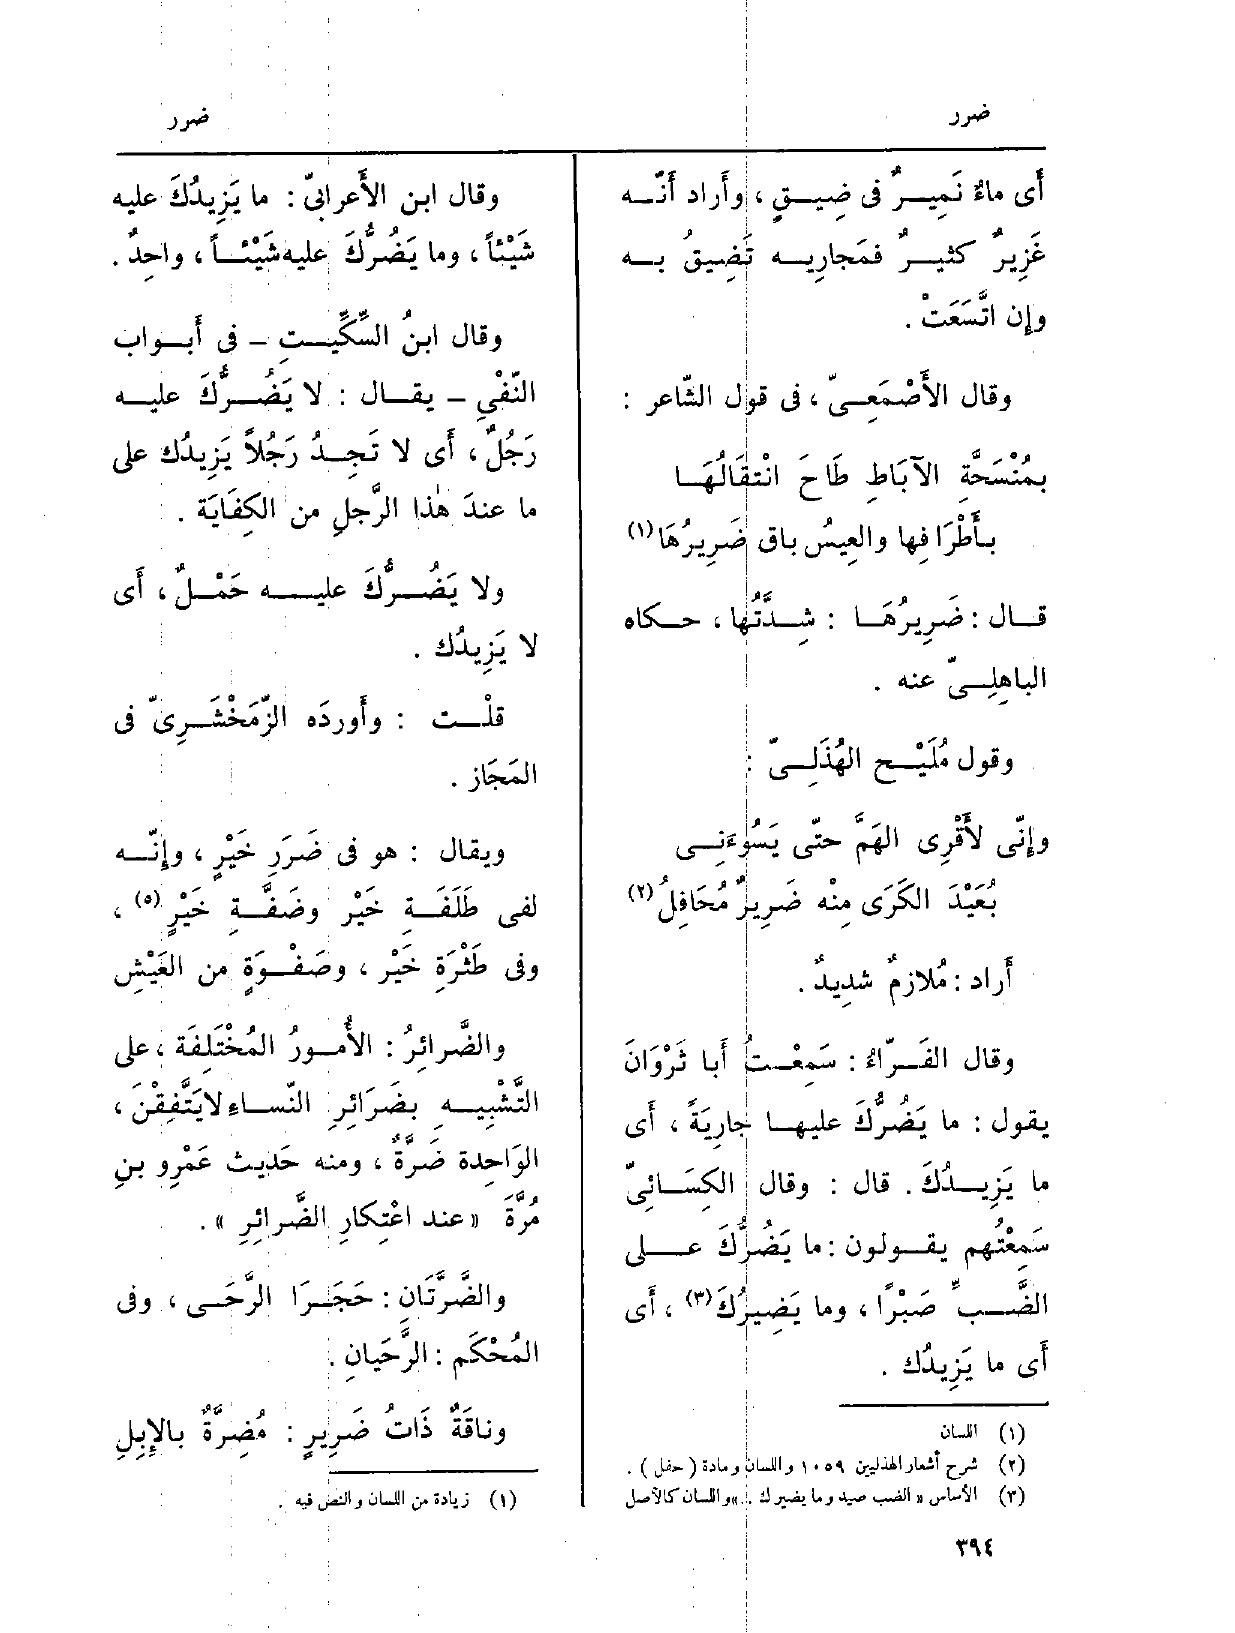 ضرر
ضرر
أَى ماءٌ نَمِيــرٌ فى ضِيــقٍ ، وأَراد أَنّــه
غَزِيرٌ كثيــرٌ فمَجارِيــه تَضِيقُ بــه
وإِن اتَّسَعَتْ .
وقال الأَصْمَعِــىّ ، فى قول الشّاعر :
بمُنْسَحَّةِ الآبَاطِ طَاحَ انْتِقَالُهَــا
بأَطْرَافِها والعِيسُ باقٍ ضَرِيرُهَا (١)
قــال : ضَرِيرُهَــا : شِــدَّتُها ، حــكاه
الباهِلِــىّ عنه .
وقول مُلَيْــح الهُذَلِــىّ :
وإِنّى لأَقْرِى الهَمَّ حتّى يَسُوءَنِــى
بُعَيْدَ الكَرَى مِنْه ضَرِيرٌ مُحَافِلُ (٢)
أَراد : مُلازِمٌ شَدِيدٌ .
وقال الفَــرّاءُ : سَمِعْــتُ أَبا ثَرْوَانَ
يقول : ما يَضُرُّكَ عليهــا جارِيَةً ، أَى
ما يَزِيــدُكَ . قال : وقال الكِسَــائِىّ
سَمِعْتُهم يقــولون : ما يَضُرُّكَ عــلى
الضَّــبِّ صَبْرًا ، وما يَضِيرُكَ (٣) ، أَى
أَى ما يَزِيدُك .
(١) اللسان
(٢) شرح أشعار الهذليين ١٠٥٩ واللسان ومادة ( حفل ) .
(٣) الأساس « الضب صيد وما يضيرك .. » واللسان كالأصل
وقال ابن الأَعرابىّ : ما يَزِيدُكَ عليه
شَيْئاً ، وما يَضُرُّكَ عليه شَيْئــاً ، واحِدٌ .
وقال ابنُ السِّكِّيــتِ ــ فى أَبــواب
النّفْىِ ــ يقــال : لا يَضُــرُّكَ عليــه
رَجُلٌ ، أَى لا تَجِــدُ رَجُلاً يَزِيدُك على
ما عندَ هٰذا الرَّجلِ من الكِفَايَة .
ولا يَضُــرُّكَ عليــه حَمْــلٌ ، أَى
لا يَزِيدُك .
قلْــت : وأَوردَه الزّمَخْشَــرِىّ فى
المَجَاز .
ويقال : هو فى ضَرَرِ خَيْرٍ ، وإِنّــه
لفى طَلَفَــةِ خَيْر وضَفَّــةِ خَيْرٍ (٥) ،
وفى طَثْرَةِ خَيْر ، وصَفْــوَةٍ من العَيْش
والضَّرائرُ : الأُمــورُ المُخْتَلِفَة ، على
التَّشْبِيــه بضَرَائرِ النّســاءِ لا يَتَّفِقْنَ ،
الوَاحِدة ضَرَّةٌ ، ومنه حَدِيث عَمْرِو بنِ
مُرَّةَ « عند اعْتِكارِ الضَّرائرِ » .
والضَّرَّتَانِ : حَجَــرَا الرَّحَــى ، وفى
المُحْكَم : الرَّحَيانِ .
وناقَةٌ ذَاتُ ضَرِيرٍ : مُضِرَّةٌ بالإِبِلِ
(١) زيادة من اللسان والنص فيه .
٣٩٤